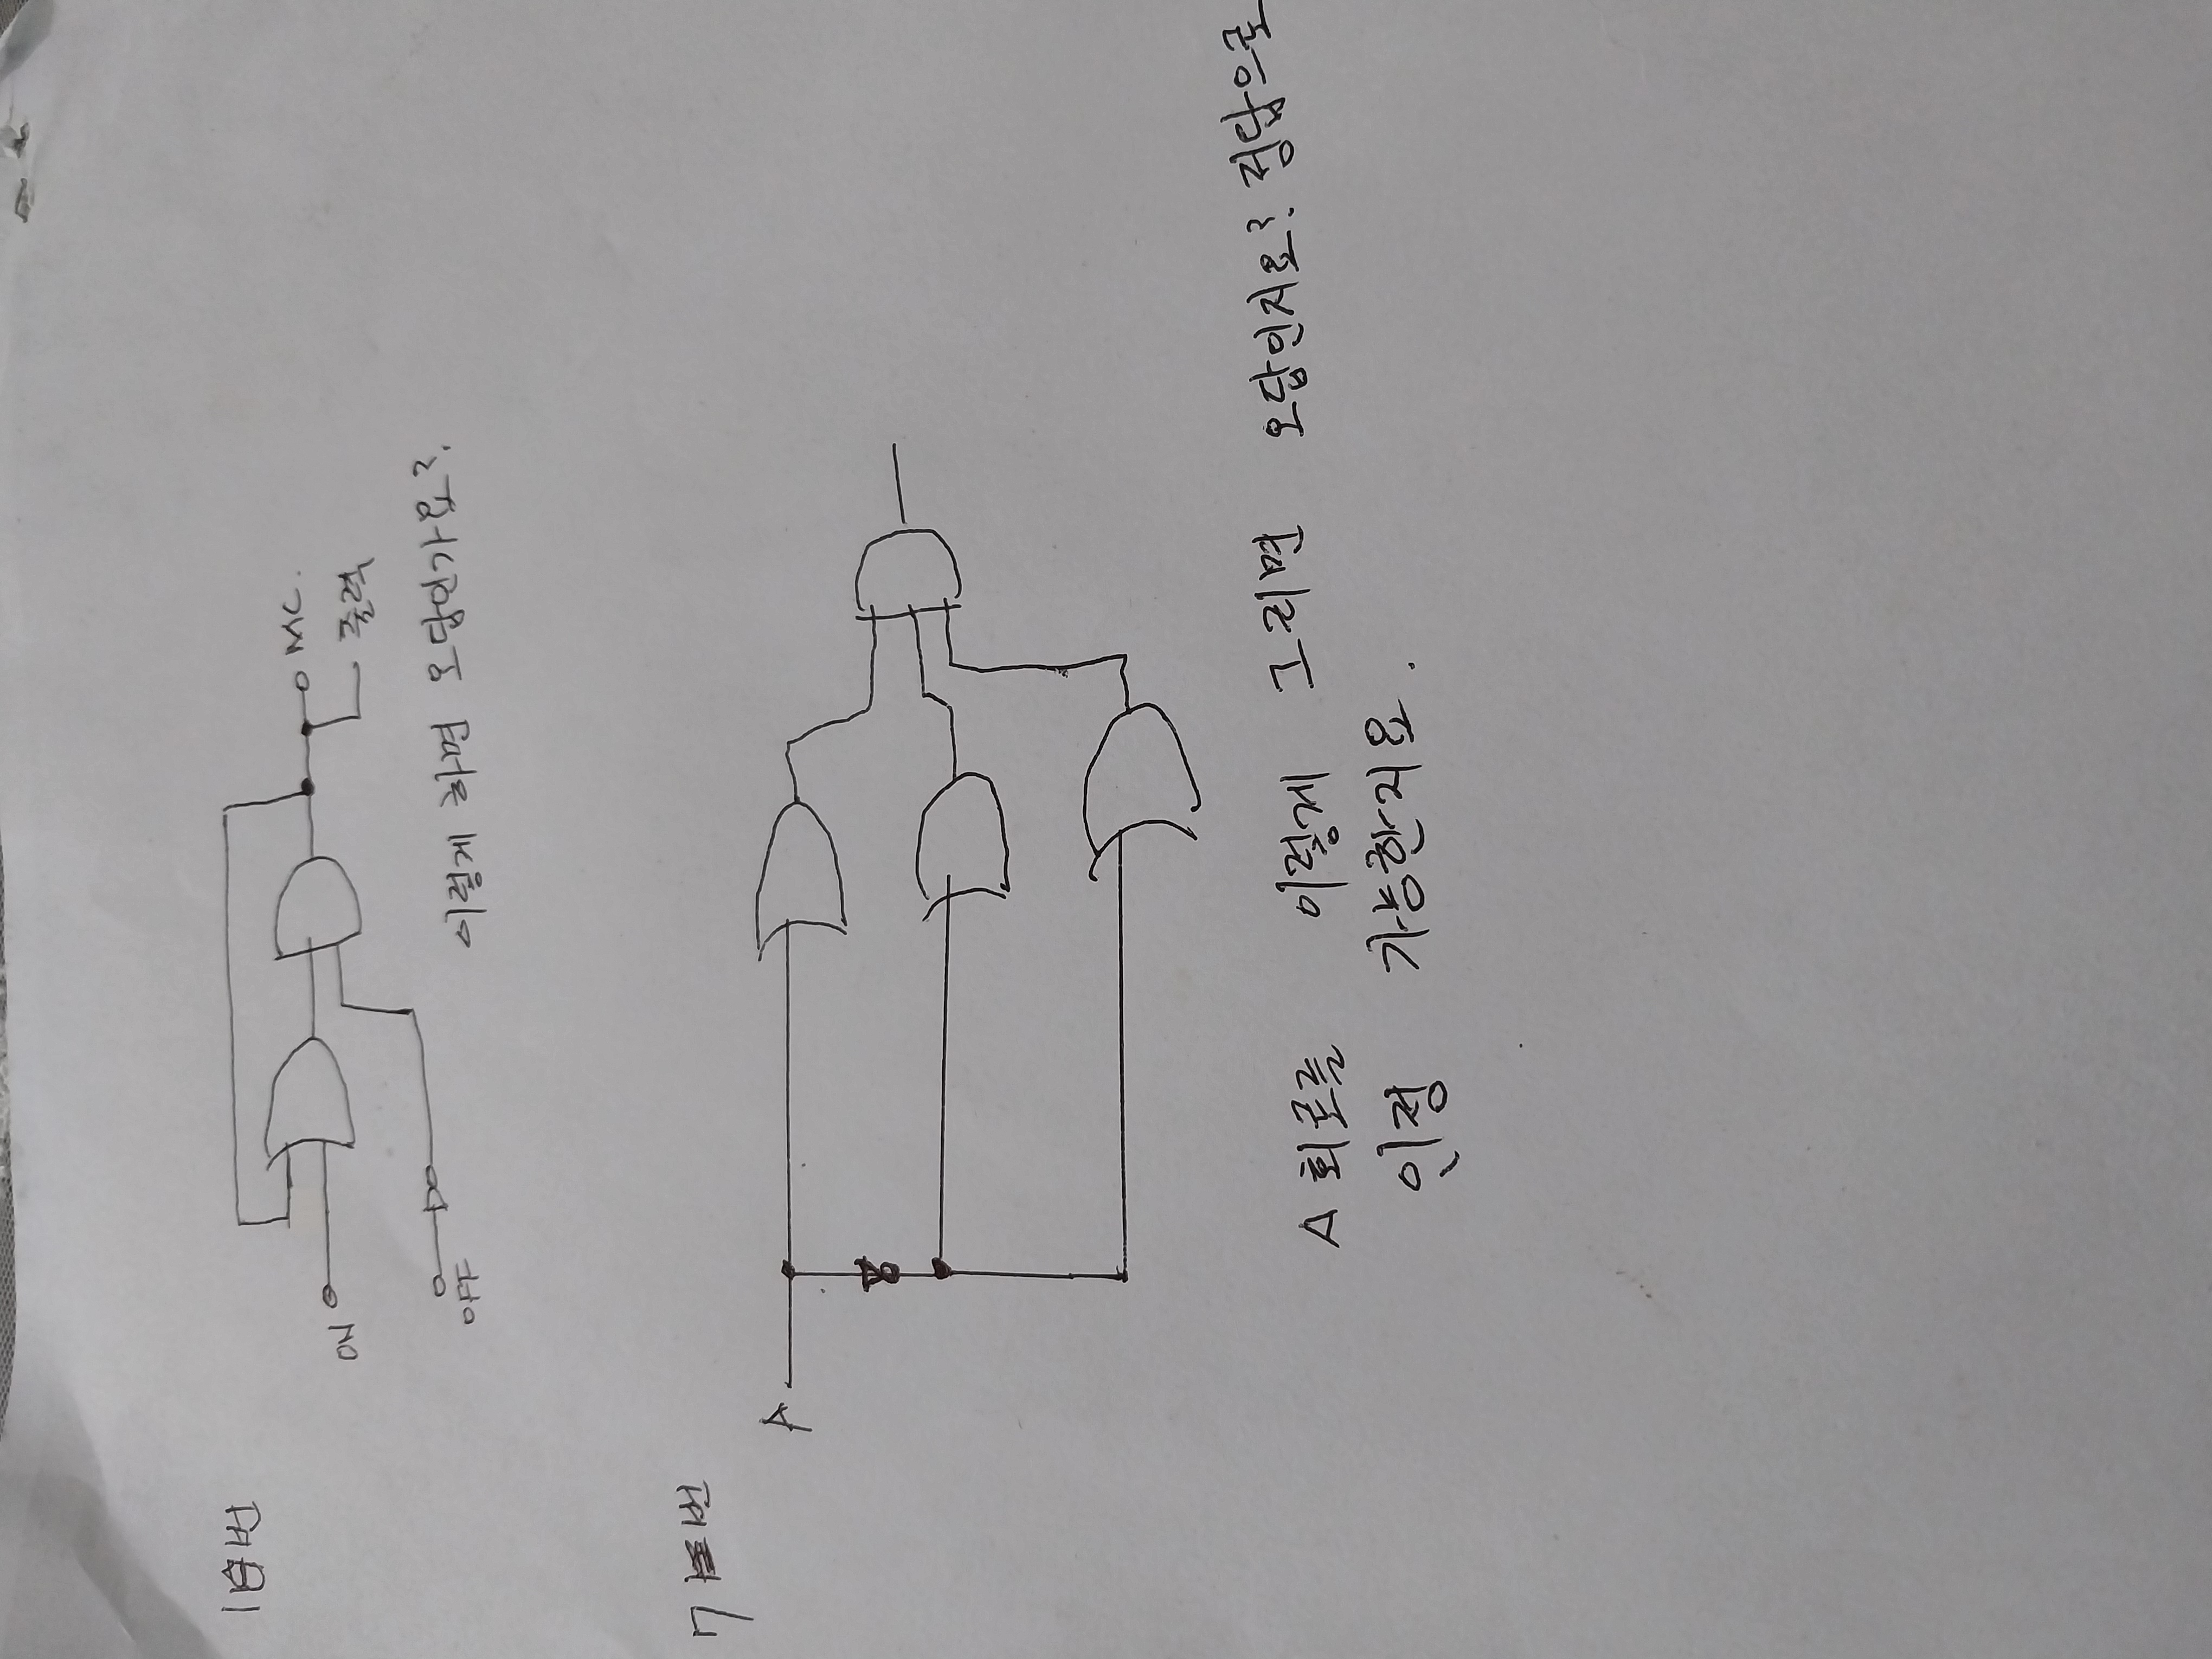 18번
ON
OFF
MC.
출력
이렇게 하면 오답인가요?.
7번
A
A 회로를 이렇게 그리면 오답인지요?. 정답으로
인정 가능한지요.